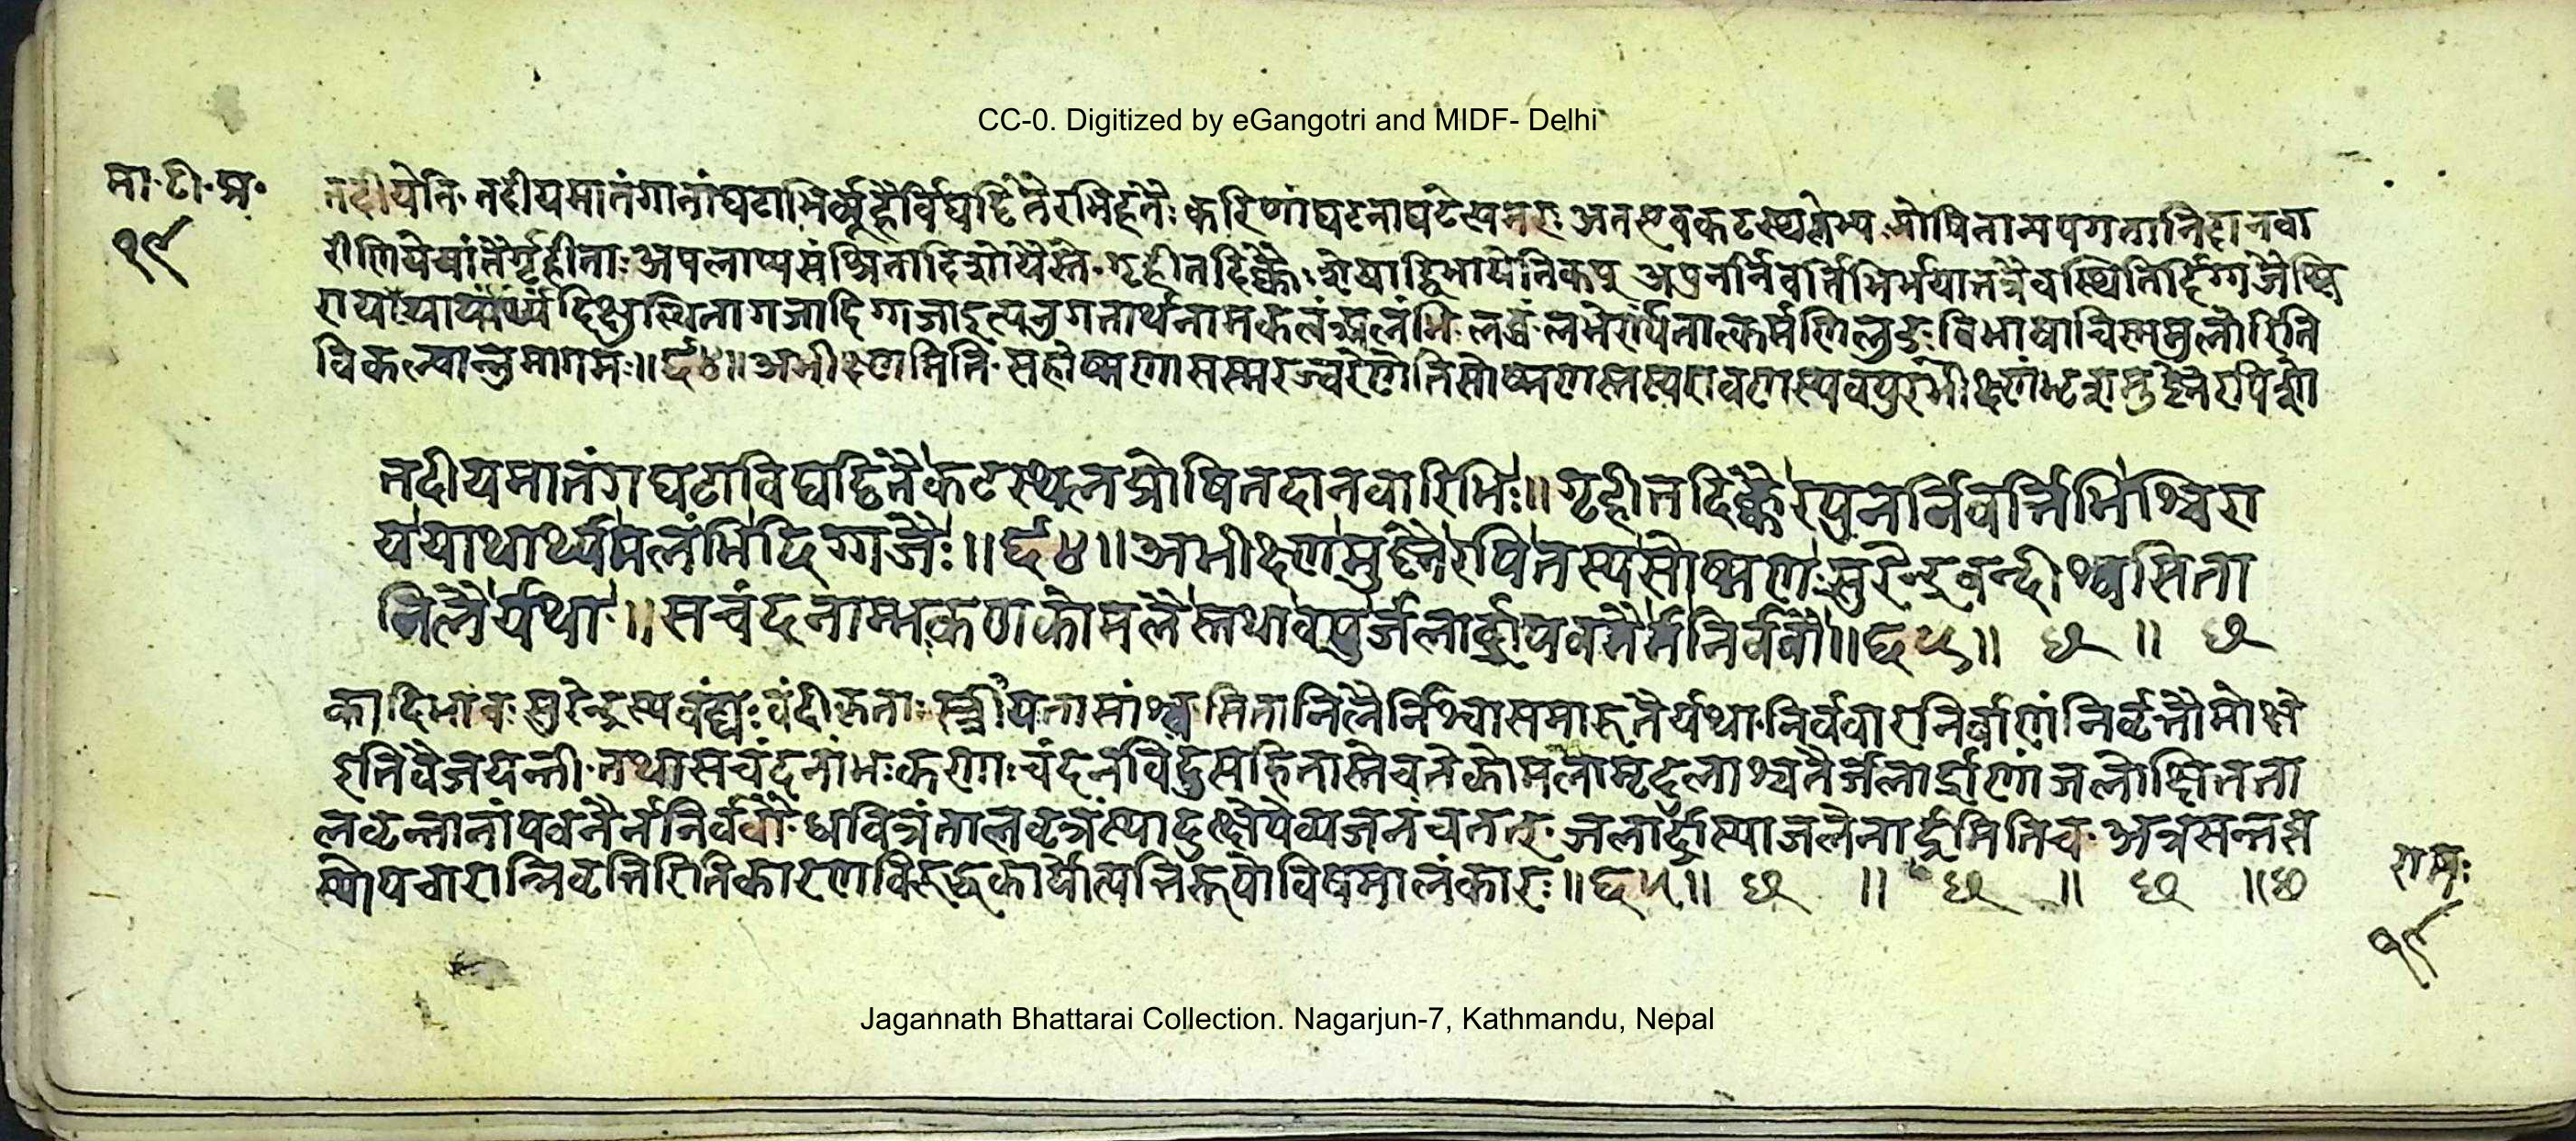 CC-0. Digitized by eGangotri and MIDF- Delhi
मा·टी·प्र·
१९
तदीयेति· तदीयमातंगानांघटाभिर्व्यूहैर्विघट्टितैरभिहतैः करिणांघटनाघटेत्यमरः अतएवकटस्थलेभ्यः प्रोषितान्यपगतानिदानवा
रीणियेषांतैर्गृहीताः अपलाय्यसंश्रितादिशोयैस्तै· गृहीतदिक्कैः शेषाद्विभाषेतिकप् अपुनर्निवर्त्तिभिर्भयात्तत्रैवस्थितैर्दिग्गजैश्चि
राययाथार्थ्यंदिक्षुस्थितागजादिग्गजाइत्यनुगतार्थनामकत्वंअलंभि· लब्धं·लभेर्ण्यंतात्कर्मणिलुङ्·विभाषाचिण्णमुलोरिति
विकल्पान्नुमागमः॥६४॥अभीक्ष्णमिति·सहोष्मणासस्मरज्वरेणेतिसोष्मणस्तस्यरावणस्यवपुरभीक्ष्णंभृशमुष्णैरपिशो
तदीयमातंगघटाविघट्टितैःकटस्थलप्रोषितदानवारिभिः॥गृहीतदिक्कैरपुनर्निवर्त्तिभिश्चिरा
ययाथार्थ्यमलंभिदिग्गजैः॥६४॥अभीक्ष्णमुष्णैरपितस्यसोष्मणःसुरेन्द्रबन्दीश्वसिता
निलैर्यथा॥सचंदनाम्भःकणकोमलैस्तथावपुर्जलार्द्रापवनैर्ननिर्ववौ॥६५॥ ༶ ॥ ༶
कादिभावः सुरेन्द्रस्यवंद्यः वंदीकृताः स्त्रीयतासांश्वसितानिलैर्निश्वासमारुतैर्यथा·निर्ववार·निर्वाणंनिर्वृत्तौमोक्षे
इतिवैजयन्ती·तथासचंदनांभःकणाःचंदनविंदुसहितास्तेचतेकोमलामृदुलाश्चतैर्जलार्द्राणांजलोक्षितता
लवृन्तानांपवनैर्ननिर्ववौ·धवित्रंतालवृन्तंस्यादुत्क्षेपेव्यजनंचतत्· जलार्द्रास्याजलेनार्द्रमितिच·अत्रसन्तप्त
स्योपचारान्निवृत्तिरितिकारणविरुद्धकार्योत्पत्तिरूपोविषमालंकारः॥६५॥
रामः
१९
Jagannath Bhattarai Collection. Nagarjun-7, Kathmandu, Nepal